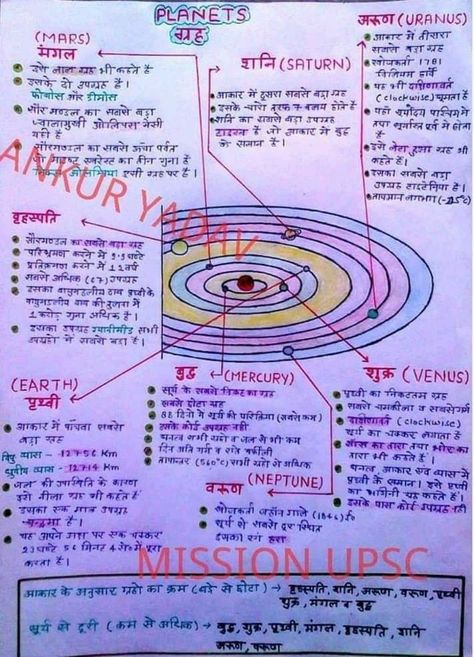 PLANETS
ग्रह
(MARS)
मंगल
इसे लाल ग्रह भी कहते हैं
इसके दो उपग्रह है।
फोबोस और डीमोस
सौर मण्डल का सबसे बड़ा
ज्वालामुखी ओलिपस मेसी
यही है
सौरमण्डल का सबसे ऊँचा पर्वत
जो माउण्ट एवरेस्ट का तीन गुना है
निक्स ओलम्पिया इसी ग्रह पर है।
शनि (SATURN)
आकार में दूसरा सबसे बड़ा ग्रह
इसके चारो तरफ 7 वलय होते हैं
शनि का सबसे बड़ा उपग्रह
टाइटन है जो आकार में बुध
के समान है।
अरूण (URANUS)
आकार में तीसरा
सबसे बड़ा ग्रह
खोजकर्ता 1781
विलियम हर्शेल
यह भी दक्षिणावर्त
(clockwise) घूमता है
यहाँ सूर्योदय पश्चिम में
तथा सूर्यास्त पूर्व में होता
है
इसे लेटा हुआ ग्रह भी
कहते हैं।
इसका सबसे बड़ा
उपग्रह टाइटेनिया है।
तापमान लगभग (-215°C)
ANKUR YADAV
बृहस्पति
सौरमण्डल का सबसे बड़ा ग्रह
परिभ्रमण करने में 9.5 घण्टे
परिक्रमण करने में 12 वर्ष
सबसे अधिक (67) उपग्रह
इसका वायुमण्डलीय दाब पृथ्वी के
वायुमण्डलीय दाब की तुलना में
1 करोड़ गुना अधिक है।
इसका उपग्रह ग्यानीमीड सभी
उपग्रहो में सबसे बड़ा है।
(EARTH)
पृथ्वी
आकार में पाँचवा सबसे
बड़ा ग्रह
विषु व्यास - 12756 Km
ध्रुवीय व्यास - 12714 Km
जल की उपस्थिति के कारण
इसे नीला ग्रह भी कहते हैं
इसका एक मात्र उपग्रह
चन्द्रमा है।
यह अपने अक्ष पर एक चक्कर
23 घण्टे 56 मिनट 4 सेo में पूरा
करता है।
बुध (MERCURY)
सूर्य के सबसे निकट का ग्रह
सबसे छोटा ग्रह
88 दिनो में सूर्य की परिक्रमा (सबसे कम)
इसके कोई उपग्रह नहीं
घनत्व सभी ग्रहो व जल से भी कम
दिन अति गर्म व राते बर्फीली
तापान्तर (560°C) सभी ग्रहों से अधिक
वरूण (NEPTUNE)
खोजकर्ता जहॉन गाले (1846) ई०
सूर्य से सबसे दूर स्थित
इसका रंग हरा
शुक्र (VENUS)
पृथ्वी का निकटतम ग्रह
सबसे चमकीला व सबसे गर्म
दक्षिणावर्त (clockwise)
सूर्य का चक्कर लगाता है
साँझ का तारा तथा भोर का
तारा भी कहते हैं।
घनत्व, आकार एवं व्यास में
पृथ्वी के समान। इसे पृथ्वी
का भगिनी ग्रह कहते हैं।
इसके पास कोई उपग्रह नहीं
MISSION UPSC
आकार के अनुसार ग्रहो का क्रम (बड़े से छोटा) → बृहस्पति, शनि, अरूण, वरूण, पृथ्वी
शुक्र, मंगल व बुध
सूर्य से दूरी (कम से अधिक) → बुध, शुक्र, पृथ्वी, मंगल, बृहस्पति, शनि
अरूण, वरूण